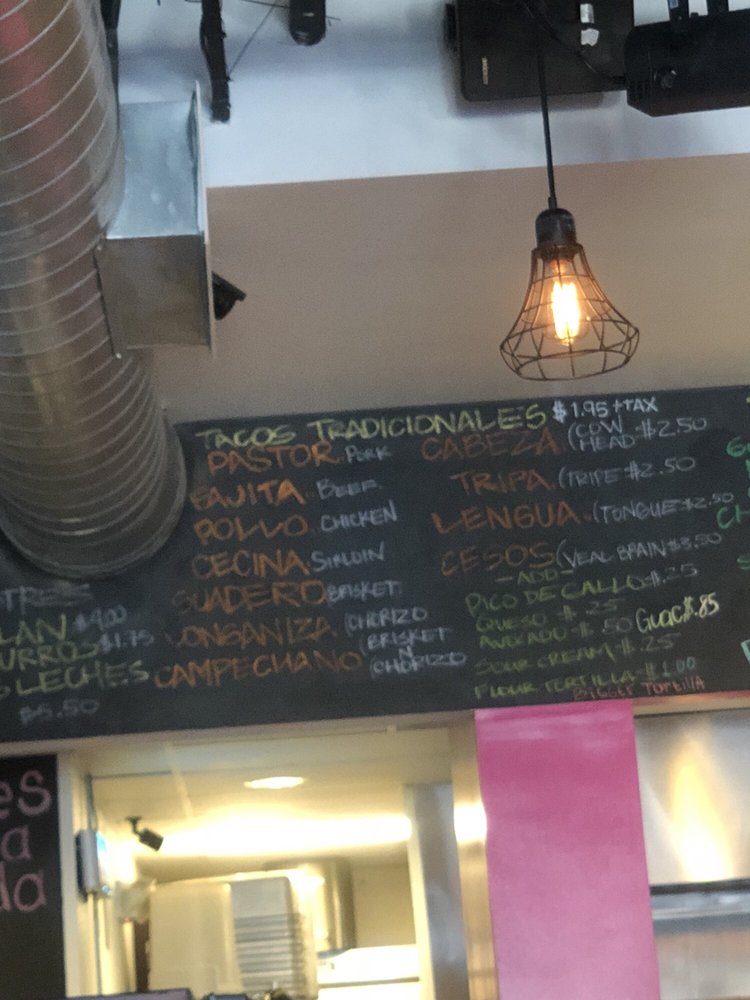 TACOS TRADICIONALES $1.95 +TAX
PASTOR. PORK
FAJITA. BEEF
POLLO. CHICKEN
CECINA. SIRLOIN
SUADERO (BRISKET)
LONGANIZA. (CHORIZO
CAMPECHANO (BRISKET
N
CHORIZO
CABEZA (COW
HEAD-$2.50
TRIPA. (TRIPE-$2.50
LENGUA. (TONGUE $2.50
CESOS (VEAL BRAIN $3.50
-ADD-
PICO DE GALLO-$.25
QUESO-$.25
AVOCADO-$.50 GUAC $.85
SOUR CREAM-$.25
FLOUR TORTILLA-$1.00
BIGGER TORTILLA
TRES
LAN. $4.00
URROS $1.75
S LECHES
$5.50
es
a
da